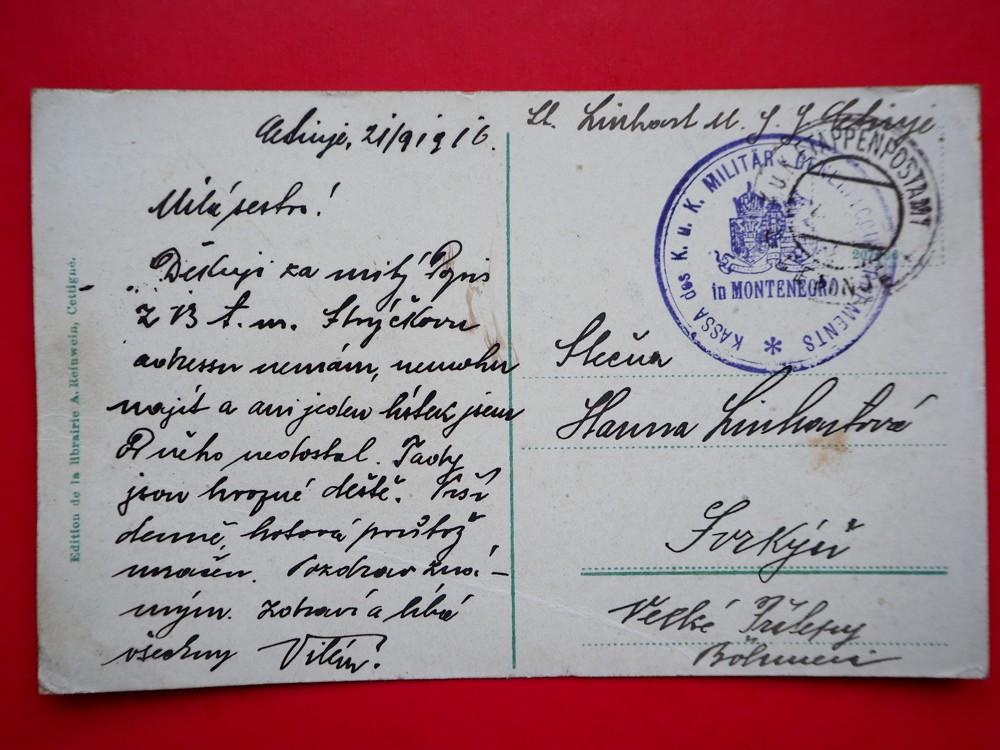 Cetinje, 21/9 1916.
Milá sestro!
Děkuji za milý dopis
z 13 t. m. Strýčkovu
adressu nemám, nemohu
najít a ani jeden lístek jsem
od něho nedostal. Tady
jsou hrozné deště. Prší
denně, hotová průtrž
mračen. Pozdrav zná-
mým. Zdraví a líbá
všechny Vilém.
Edition de la librairie A. Reinwein, Cettigné.
Linhart M. G. G. Cetinje
KASSA des K. u. K. MILITÄR - GOUVERNEMENTS
in MONTENEGRO
ETAPPENPOSTAMT
Slečna
Hanna Linhartová
Velké Přílepy
Böhmen